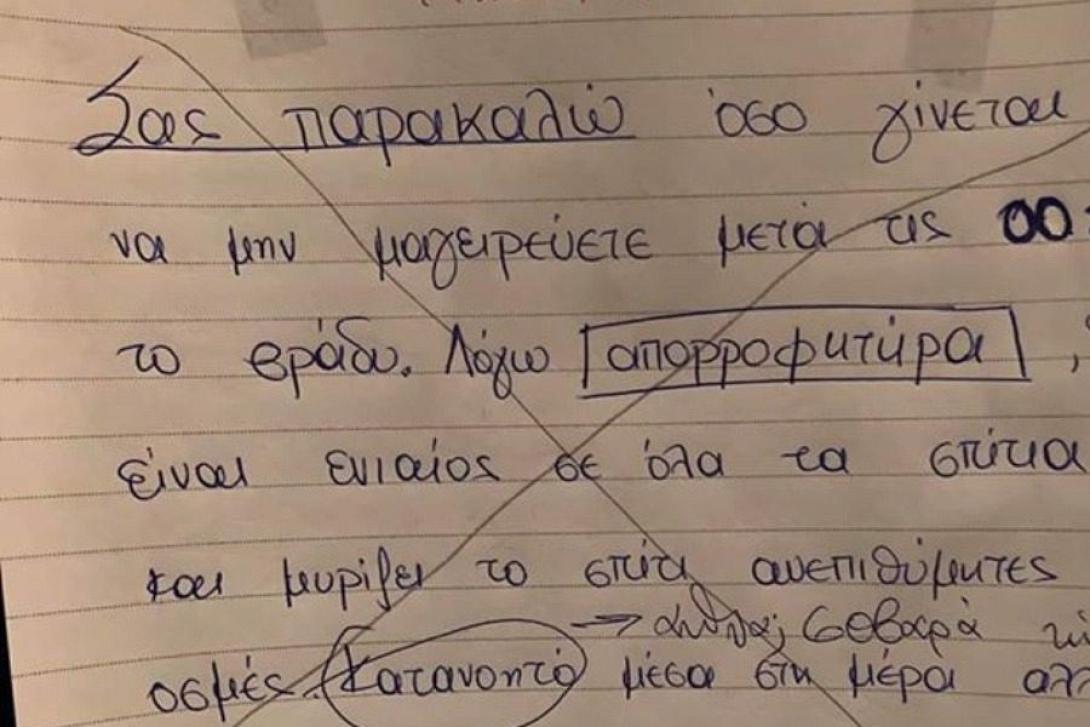 Σας παρακαλώ όσο γίνεται
να μην μαγειρεύετε μετά τις 00:
το βράδυ. Λόγω απορροφιτήρα,
είναι ενιαίος σε όλα τα σπίτια
και μυρίζει το σπίτι ανεπιθύμητες
→ αλήθεια; Σοβαρά
οσμές. Κατανοητό μέσα στη μέρα αλ